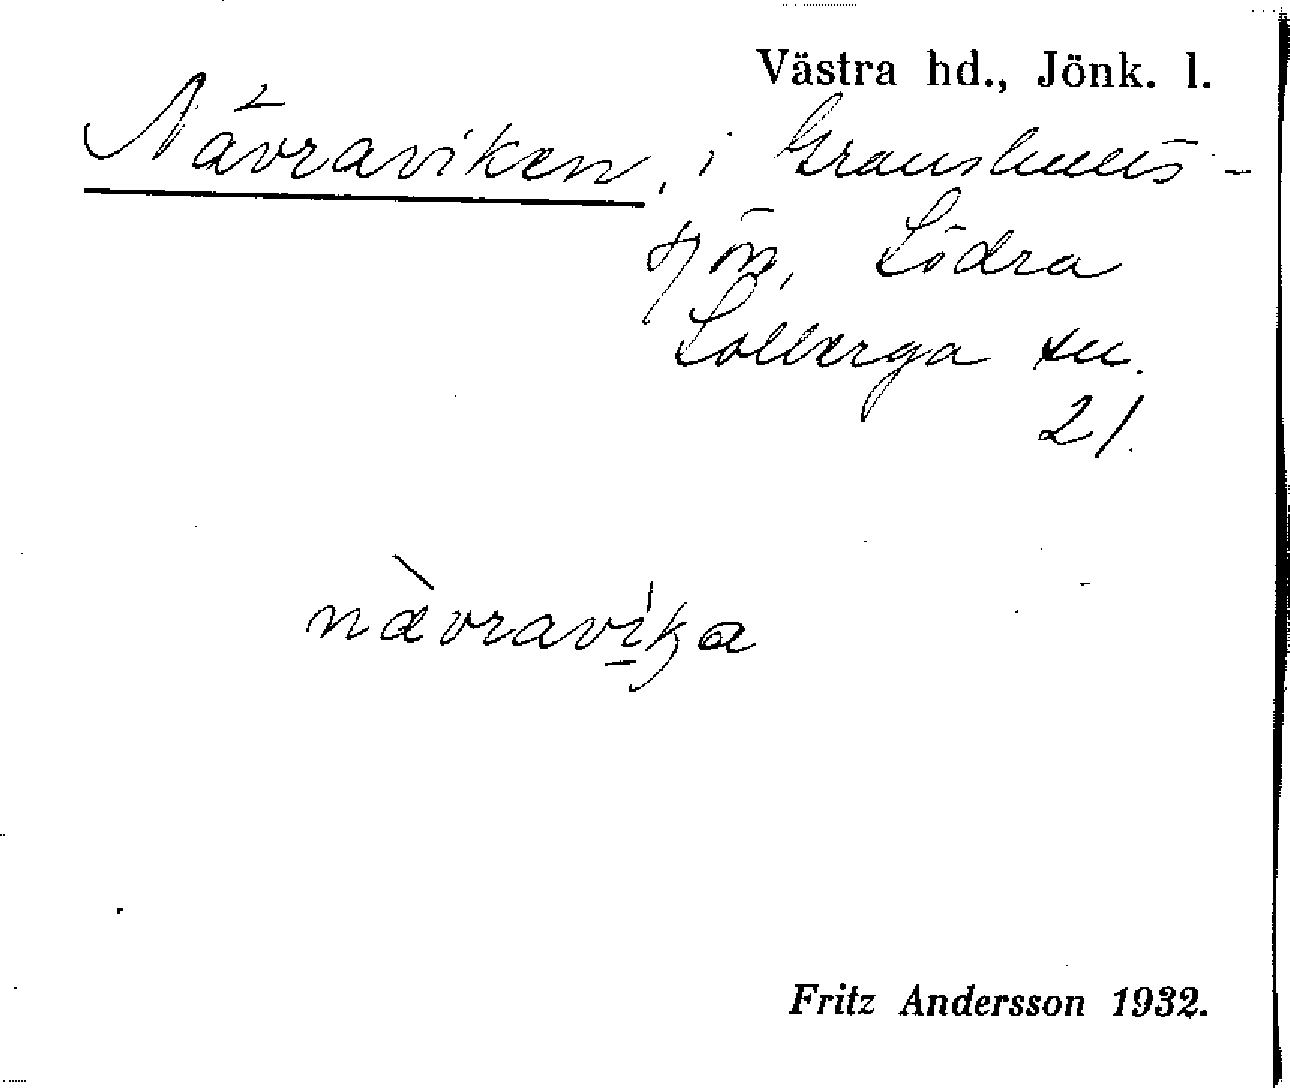 Västra hd., Jönk. l.
Nävraviken, i Granshults-
sjön, Södra
Solberga sn.
21.
nàvravika
Fritz Andersson 1932.